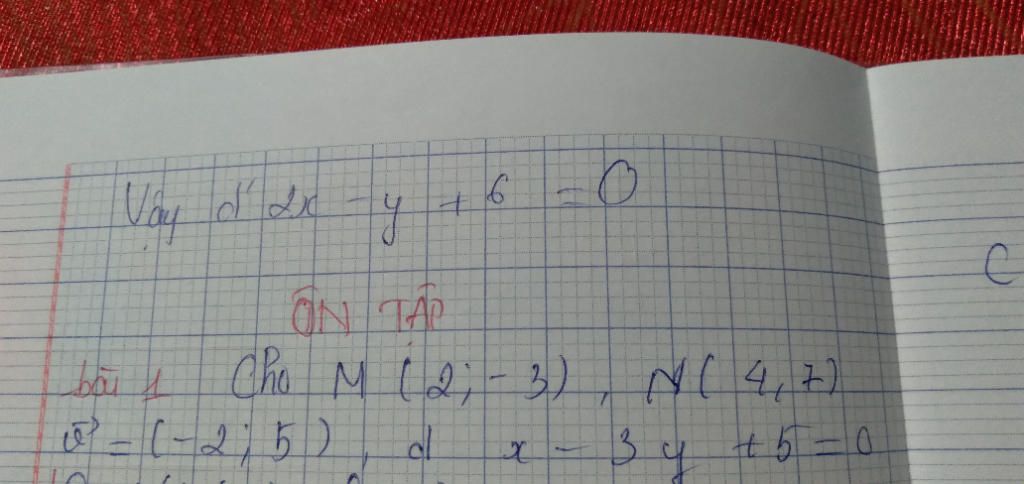 Vậy d' 2x - y + 6 = 0
ÔN TẬP
bài 1 Cho M (2; -3), N (4, 7)
v⃗ = (-2; 5), d x - 3y + 5 = 0
C